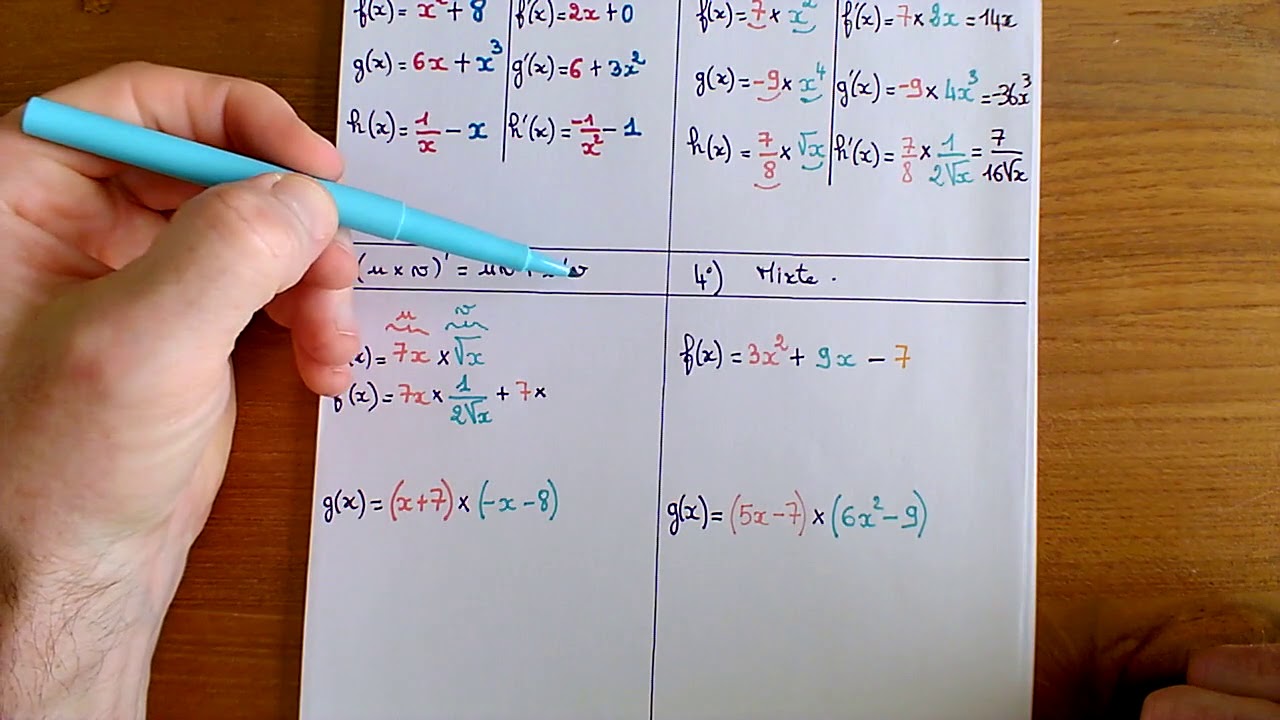 f(x) = x² + 8 | f'(x) = 2x + 0
g(x) = 6x + x³ | g'(x) = 6 + 3x²
h(x) = 1/x − x | h'(x) = −1/x² − 1
f(x) = 7 × x² | f'(x) = 7 × 2x = 14x
g(x) = −9 × x⁴ | g'(x) = −9 × 4x³ = −36x³
h(x) = 7/8 × √x | h'(x) = 7/8 × 1/2√x = 7/16√x
(u × v)' =
u v
(x) = 7x × √x
(x) = 7x × 1/2√x + 7 ×
g(x) = (x+7) × (−x−8)
4°) Mixte.
f(x) = 3x² + 9x − 7
g(x) = (5x−7) × (6x²−9)